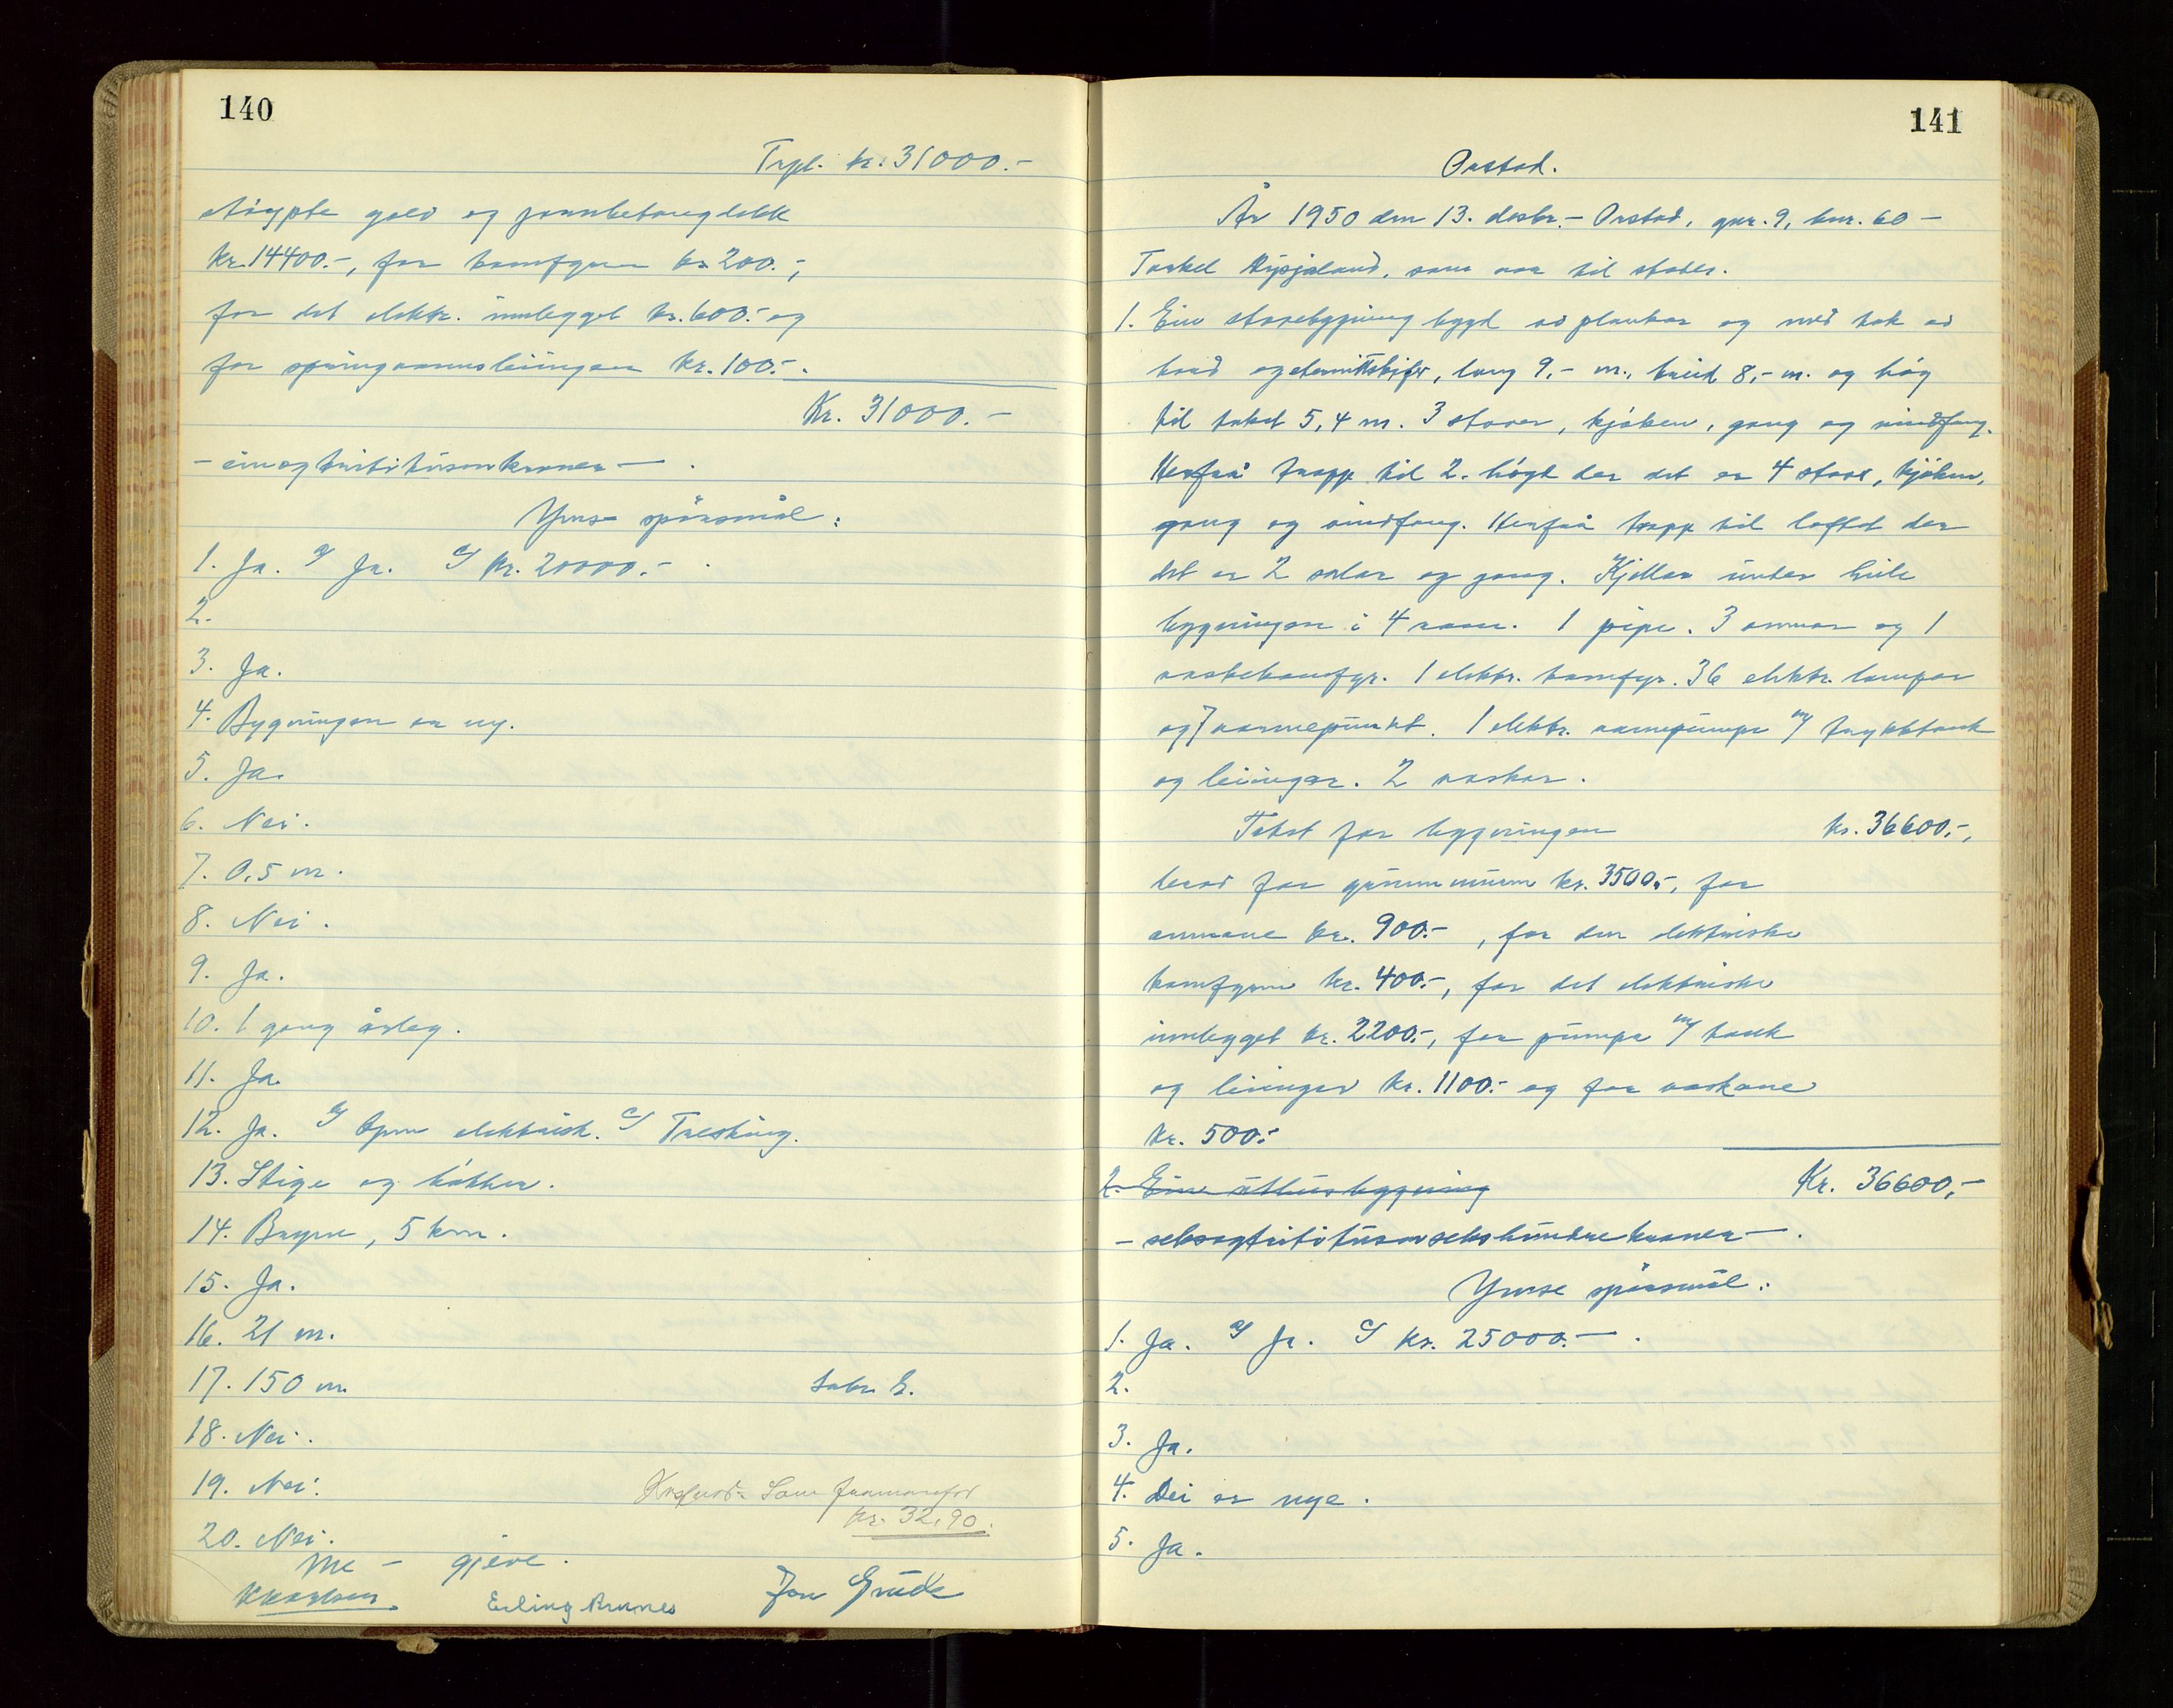 140
Trpl. kr. 31000.-
støypte golv og jarnbetongdekk
kr. 14400.-, for komfyren kr. 200.-,
for det elektr. innlegget kr. 600.- og
for springvassleiingen kr. 100.-.
Kr. 31000.-
- einogtrititusen kroner - .
Ymse spørsmål:
1. Ja. a/ Ja. c/ kr. 20000.- .
2.
3. Ja.
4. Bygningen er ny.
5. Ja.
6. Nei.
7. 0,5 m.
8. Nei.
9. Ja.
10. 1 gong årleg.
11. Ja.
12. Ja. a/ Open elektrisk. c/ Tresking.
13. Stige og bøtter.
14. Bryne, 5 km.
15. Ja.
16. 21 m.
17. 150 m.
Takr. E.
18. Nei.
19. Nei.
Som framanfor
kr. 32,90.
20. Nei.
Me - gjeve.
Erling Brunes
Jon Grude
141
Orstad.
År 1950 den 13. desbr. - Orstad, gnr. 9, bnr. 60 -
Torkel som var til stades.
1. Ein stovebygning bygd av plankar og med tak av
bord og eternittskifer, lang 9,- m., breid 8,- m. og høg
til taket 5,4 m. 3 stover, kjøken, gang og vindfang.
Herfrå trapp til 2. høgd der det er 4 stover, kjøken,
gang og vindfang. Herfrå trapp til loftet der
det er 2 salar og gang. Kjellar under heile
bygningen i 4 rom. 1 pipe. 3 omnar og 1
vaskekomfyr. 1 elektr. komfyr. 36 elektr. lampor
og 7 varmepunkt. 1 elektr. vasspumpe m/ trykktank
og leiingar. 2 vaskar.
Takst for bygningen kr. 36600,-,
herav for grunnmuren kr. 3500,-, for
omnane kr. 900.-, for den elektriske
komfyren kr. 400.-, for det elektriske
innlegget kr. 2200.-, for pumpe m/ tank
og leiingar kr. 1100.- og for vaskane
kr. 500.-
2. Ein uthusbygning Kr. 36600,-
- seksogtrititusensekshundrekroner - .
Ymse spørsmål:
1. Ja. a/ Ja. c/ kr. 25000.- .
2.
3. Ja.
4. Dei er nye.
5. Ja.